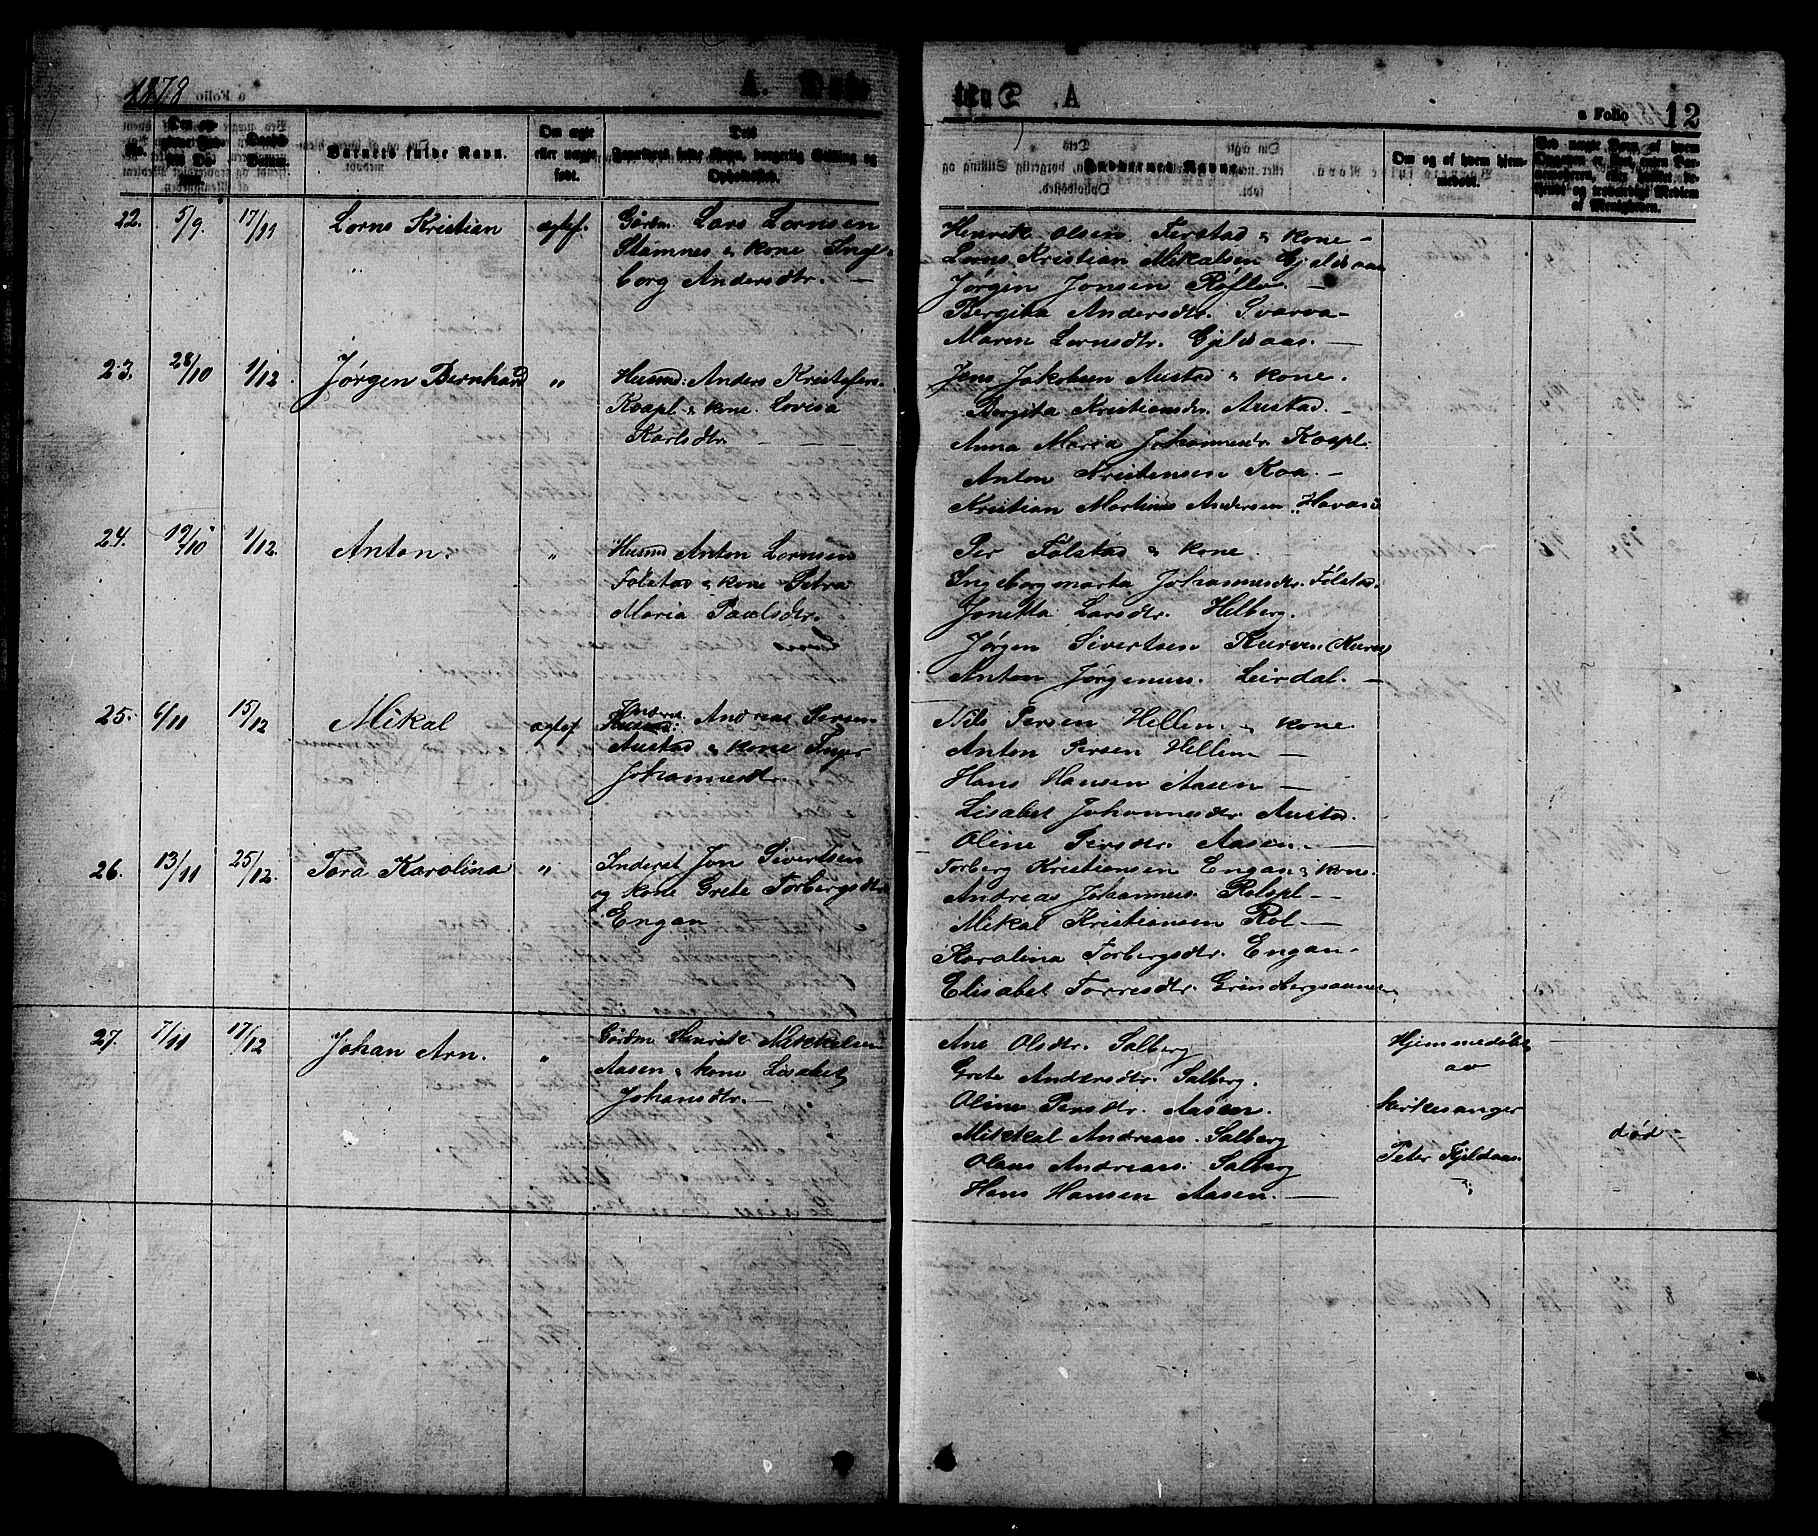 1878
A. Døbte
A. Døbte
a Folio 12
No.
Barnets fulde Navn.
Om ægte eller uægte født.
Fadderes Navne
Om og af hvem hjemmedøbt.
22. 5/9. 17/11 Lorns Kristian ægtef. Gårdm. Lars Lornsen
Stamnes & kone Inge-
borg Andersdtr. —
Henrik Olsen Ferstad & kone —
Lorns Kristian Mikalsen Gjeldsaas
Jørgen Jonsen Røflo. —
Bergita Andersdtr. Svarva —
Maren Lornsdtr. Gjeldsaas. —
23. 28/10 1/12. Jørgen Bernhard „ Husmd: Anders Kristofers.
Koapl. & kone Lovisa
Karlsdtr. —
Jens Jakobsen Austad & kone.
Bergita Kristiansdr. Austad. —
Anna Maria Johannesdr. Koapl.
Anton Kristensen Koa. —
Kristian Martinus Andersen „
24. 12/10 1/12. Anton. „ Husmd Anton Lornsen
Følstad & kone Petra
Maria Paulsdtr.
Per Følstad & kone.
Ingeborgmarta Johannesdtr. Følstad.
Jonetta Larsdtr. Helberg.
Jørgen Sivertsen
Anton Jørgensen. Leirdal. —
25. 6/11 15/12 Mikal ægtef. Inderst. Andreas Persen
Austad & kone Inger
Johannesdtr.
Nils Persen Hellem & kone
Anton Persen Hellem —
Hans Hansen Aasen —
Lisabet Johannesdtr Austad.
Oline Persdtr. Aasen. —
26. 13/11 25/12. Tora Karolina „ Inderst Jon Sivertsen
og kone Grete Torbergsdtr
Engan —
Torberg Kristiansen Engan & kone.
Andreas Johannes. Rolspl —
Mikal Kristiansen Rol —
Karolina Torbergsdtr. Engan —
Elisabet Torresdtr. Grindbergsaunet
27. 7/11 17/12 Johan Arn. „ Gårdm Henrik Mikkelsen
Aasen & kone Lisabet
Johansdtr. —
Ane Olsdtr. Salberg
Grete Andersdtr. Salberg.
Oline Persdtr. Aasen.
Mikkal Andreas. Salberg
Olaus Andreas. Salberg
Hans Hansen Aasen. —
Hjemmedøbt
av
kirkesanger
Peter Gjeldsaas.
død —